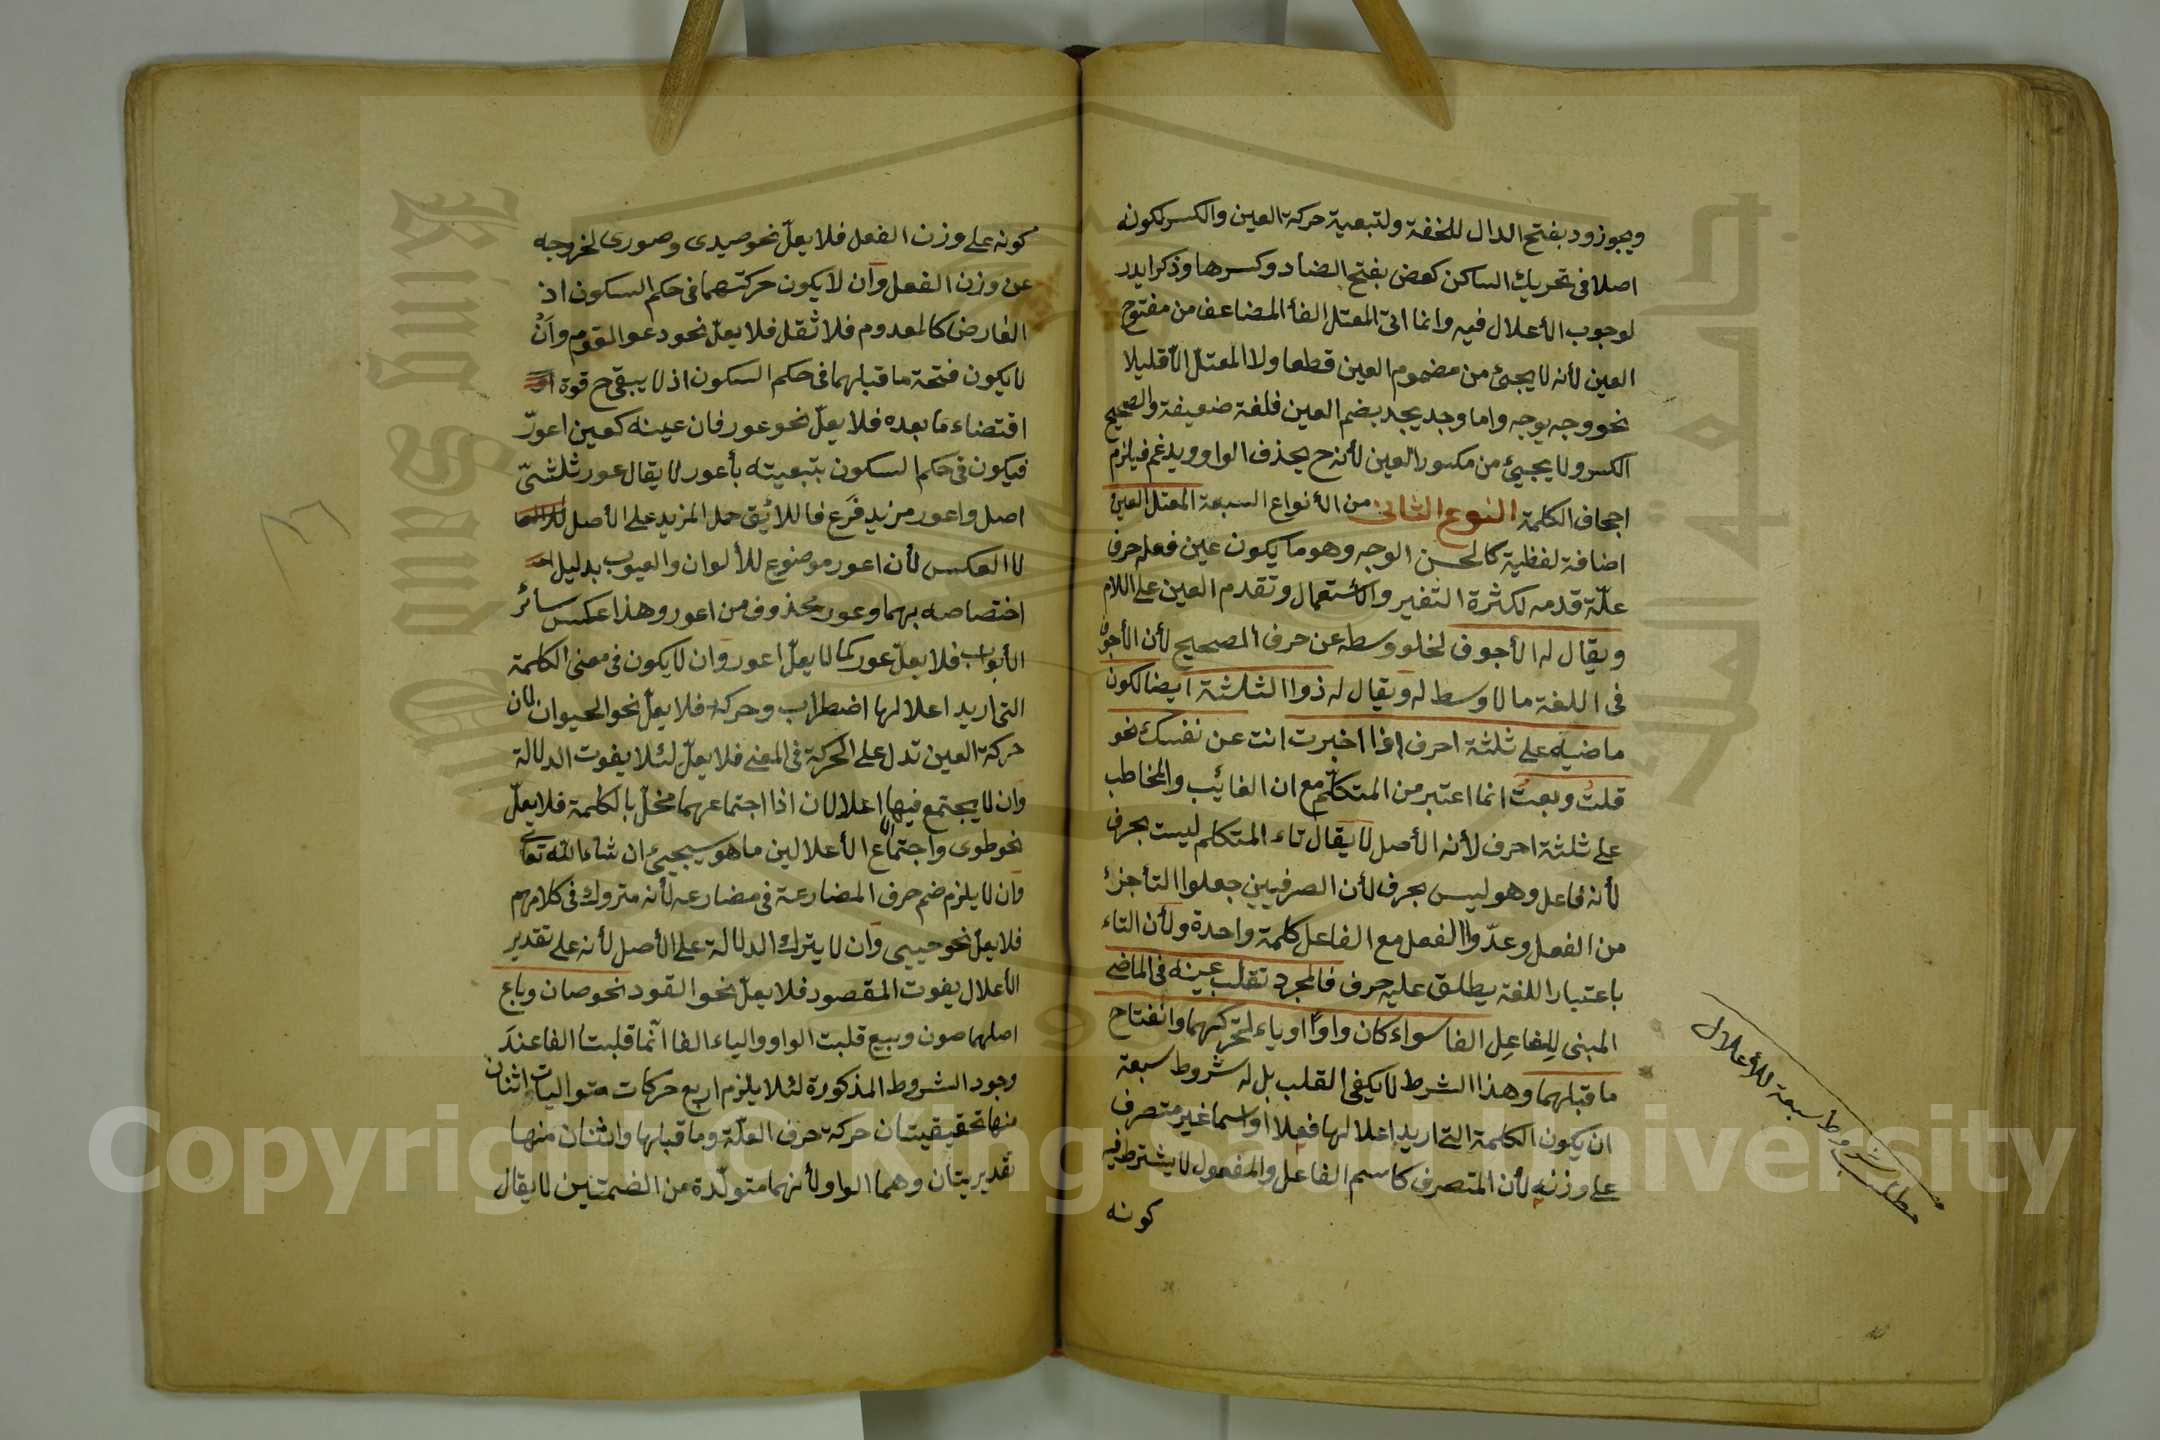 ويجوز ود بفتح الدال للخفة ولتبعية حركة العين والكسر لكونه
اصلا فى تحريك الساكن كعض بفتح الضاد وكسرها وذكر ايدر
لوجوب الأعلال فيه وانما اتى المعتل الفأ المضاعف من مفتوح
العين لأنه لا يجئ من مضموم العين قطعا ولا المعتلّ الّا قليلا
نحو وجه يوجه واما وجد يجد بضم العين فلغة ضعيفة والصحيح
الكسر ولا يجيئ من مكسور العين لأنه ح يحذف الواو ويدغم فيلزم
اجحاف الكلمة النوع الثانى من الأنواع السبعة المعتل العين
اضافة لفظية كالحسن الوجه وهو ما يكون عين فعله حرف
علّة قدمه لكثرة التغير والأستعمال وتقدم العين على اللام
ويقال له الأجوف لخلو وسطه عن حرف الصحيح لأن الأجوف
فى اللغة ما لا وسط له ويقال له ذوا الثلثة ايضا لكون
ماضيه على ثلثة احرف اذا اخبرت انت عن نفسك نحو
قلتُ وبعتُ انما اعتبر من المتكلّم مع ان الغائب والمخاطب
على ثلثة احرف لأنه الأصل لا يقال تاء المتكلم ليست بحرف
لأنه فاعل وهو ليس بحرف لأن الصرفيين جعلوا التأ جزء
من الفعل وعدّوا الفعل مع الفاعل كلمة واحدة ولأن التاء
باعتبار اللغة يطلق عليه حرف فالمجرد تقلب عينه فى الماضى
المبنى للفاعل الفا سواء كان واوًا او ياء لتحركهما وانفتاح
ما قبلهما وهذا الشرط لا يكفى القلب بل له شروط سبعة
ان يكون الكلمة التى اريد اعلالها فعلا او اسما غير متصرف
على وزنه لأن المتصرف كاسم الفاعل والمفعول لا يشترط فيه
كونه
مطلب شروط سبعة للأعلال
كونه على وزن الفعل فلا يعلّ نحو صيدى وصورى لخروجه
عن وزن الفعل وان لا يكون حركتهما فى حكم السكون اذ
العارض كالمعدوم فلا ثقل فلا يعلّ نحو دعوا القوم وانْ
لا يكون فتحة ما قبلهما فى حكم السكون اذ لا يبقى ح قوة
اقتضاء ما بعده فلا يعلّ نحو عور فان عينه كعين اعورّ
فيكون فى حكم السكون بتبعيته بأعور لا يقال عور ثلثىّ
اصل واعور مزيد فرع فاللائق حمل المزيد على الأصل
لا العكس لأن اعور موضوع للألوان والعيوب بدليل
اختصاصه بهما وعور محذوف من اعور وهذا عكس سائر
الأبواب فلا يعلّ عور كما لا يعلّ اعور وان لا يكون فى معنى الكلمة
التى اريد اعلالها اضطراب وحركة فلا يعلّ نحو الحيوان لان
حركة العين تدل على الحركة فى المعنى فلا يعلّ لئلا يفوت الدلالة
وان لا يجتمع فيها اعلالان اذا اجتماعهما مخلّ بالكلمة فلا يعلّ
نحو طوى واجتماع الأعلالين ما هو سيجيئ ان شاء الله تعالى
وان لا يلزم ضم حرف المضارعة فى مضارعه لأنه متروك فى كلامهم
فلا يعلّ نحو حييى وان لا يترك الدلالة على الأصل لأنه على تقدير
الأعلال يفوت المقصود فلا يعلّ نحو القود نحو صان وباع
اصلهما صون وبيع قلبت الواو والياء الفا انّما قلبتا الفا عند
وجود الشروط المذكورة لئلا يلزم اربع حركات متواليات اثنان
منها تحقيقيتان حركة حرف العلّة وما قبلها واثنان منها
تقديريتان وهما الواو لأنهما متولّدة من الضمتين لا يقال
Copyright © King Saud University